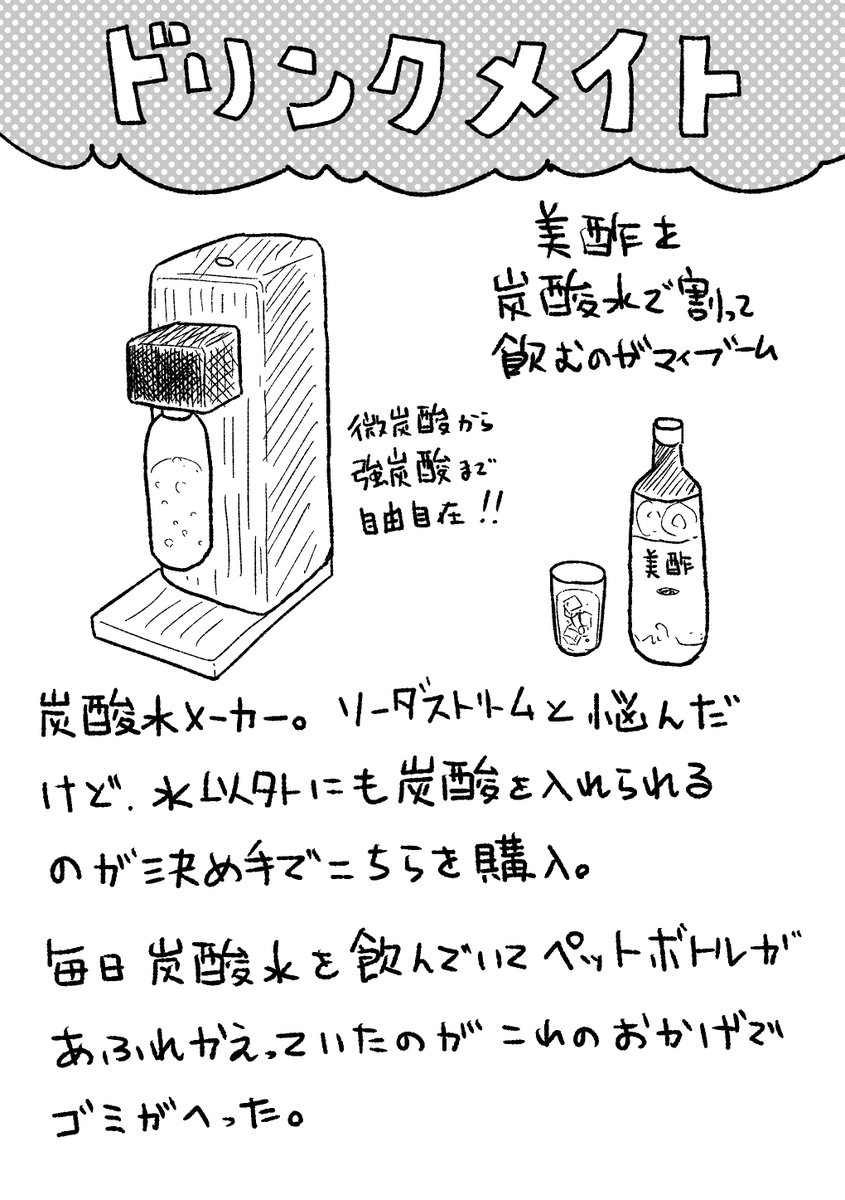 ドリンクメイト
美酢を
炭酸水で割って
飲むのがマイブーム
微炭酸から
強炭酸まで
自由自在!!
美酢
炭酸水メーカー。ソーダストリームと悩んだ
けど、水以外にも炭酸を入れられる
のが決め手でこちらを購入。
毎日炭酸水を飲んでいてペットボトルが
あふれかえっていたのがこれのおかげで
ゴミがへった。